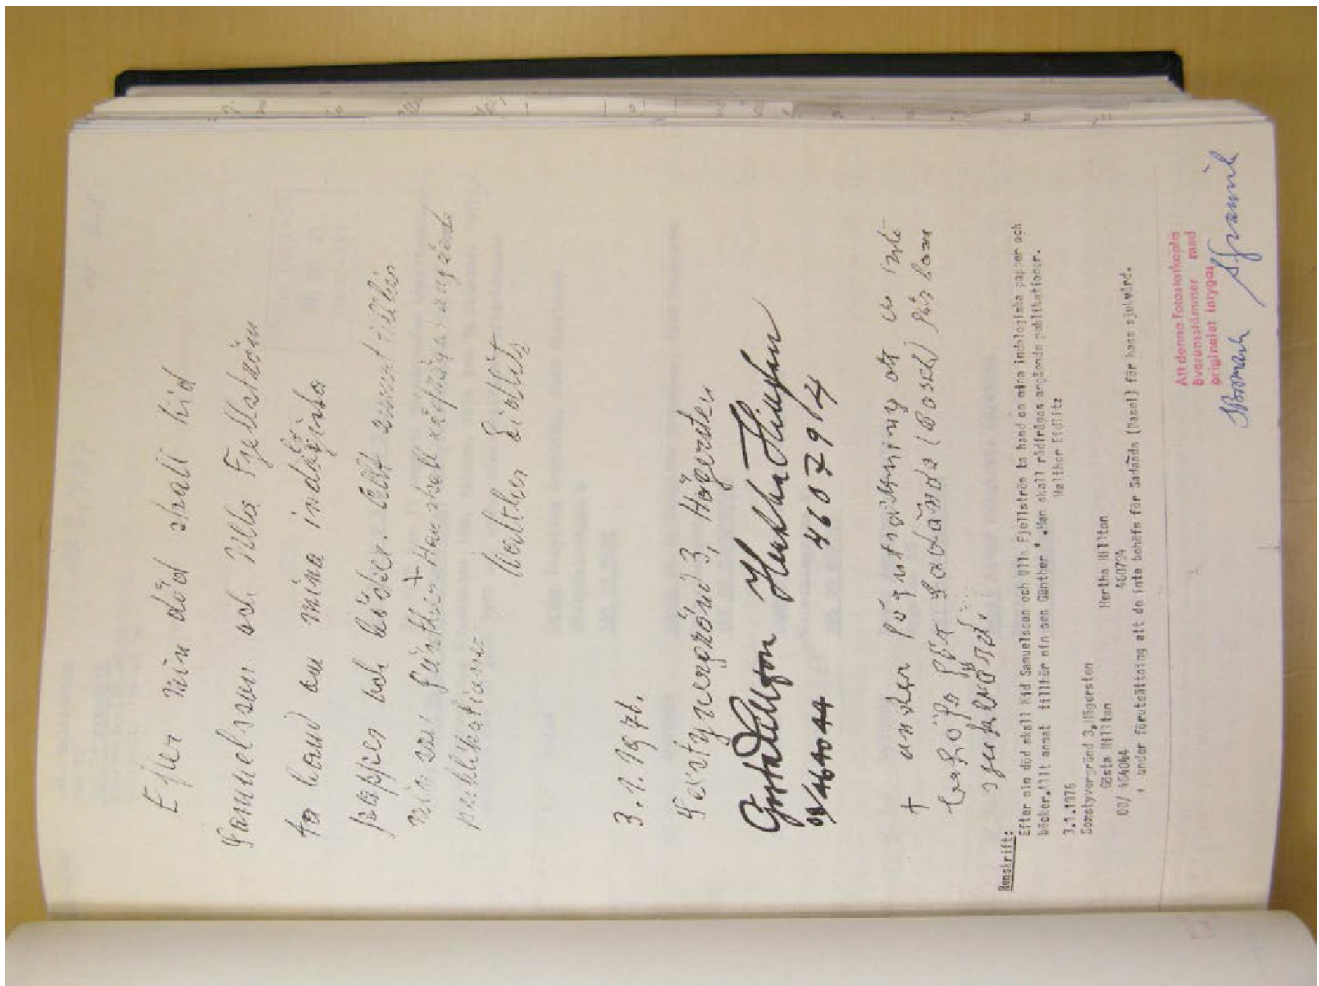 Efter min död skall Kid
Samuelsson och Ulla Fjellström
ta hand om mina indologiska
papper och böcker. Allt annat tillhör
min son Günther + Man skall rådfrågas angående
publikationer
Walther Eidlitz
3.1.1976.
Sexstyvergränd 3, Hägersten
Gösta Hillton Hertha Hillton
08/464044 460794
+ under förutsättning att de inte
behöfs för Sadānda (Basel) för hans
sjukvård.
Renskrift:
Efter min död skall Kid Samuelsson och Ulla Fjellström ta hand om mina indologiska papper och
böcker.Allt annat tillhör min son Günther +.Man skall rådfrågas angående publikationer.
Walther Eidlitz
3.1.1976
Sexstyvergränd 3,Hägersten
Gösta Hillton Hertha Hillton
08/ 464044 460794
+ under förutsättning att de inte behöfs för Sadānda (Basel) för hans sjukvård.
Att denna fotostatkopia
överensstämmer med
originalet intygas